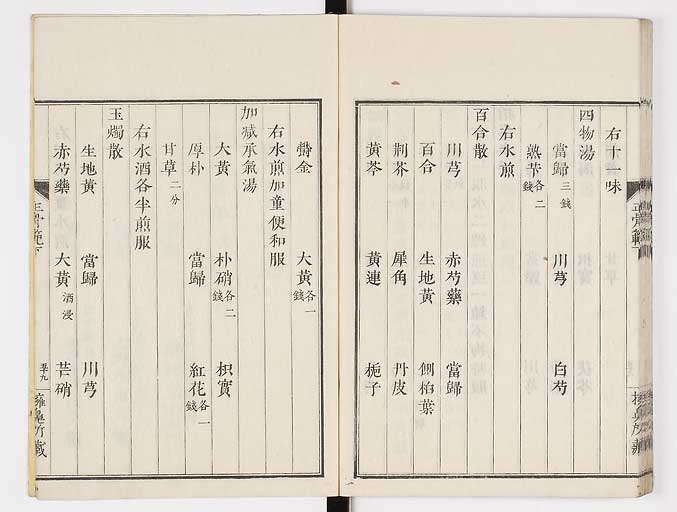 右十一味
四物湯
當歸三錢 川芎 白芍
熟芐各二錢
右水煎
百合散
川芎 赤芍藥 當歸
百合 生地黃 側柏葉
荆芥 犀角 丹皮
黃芩 黃連 梔子
鬱金 大黃各一錢
右水煎加童便和服
加减承氣湯
大黃 朴硝各二錢 枳實
厚朴 當歸 紅花各一錢
甘草二分
右水酒各半煎服
玉燭散
生地黃 當歸 川芎
赤芍藥 大黃酒浸 芒硝
正骨範下